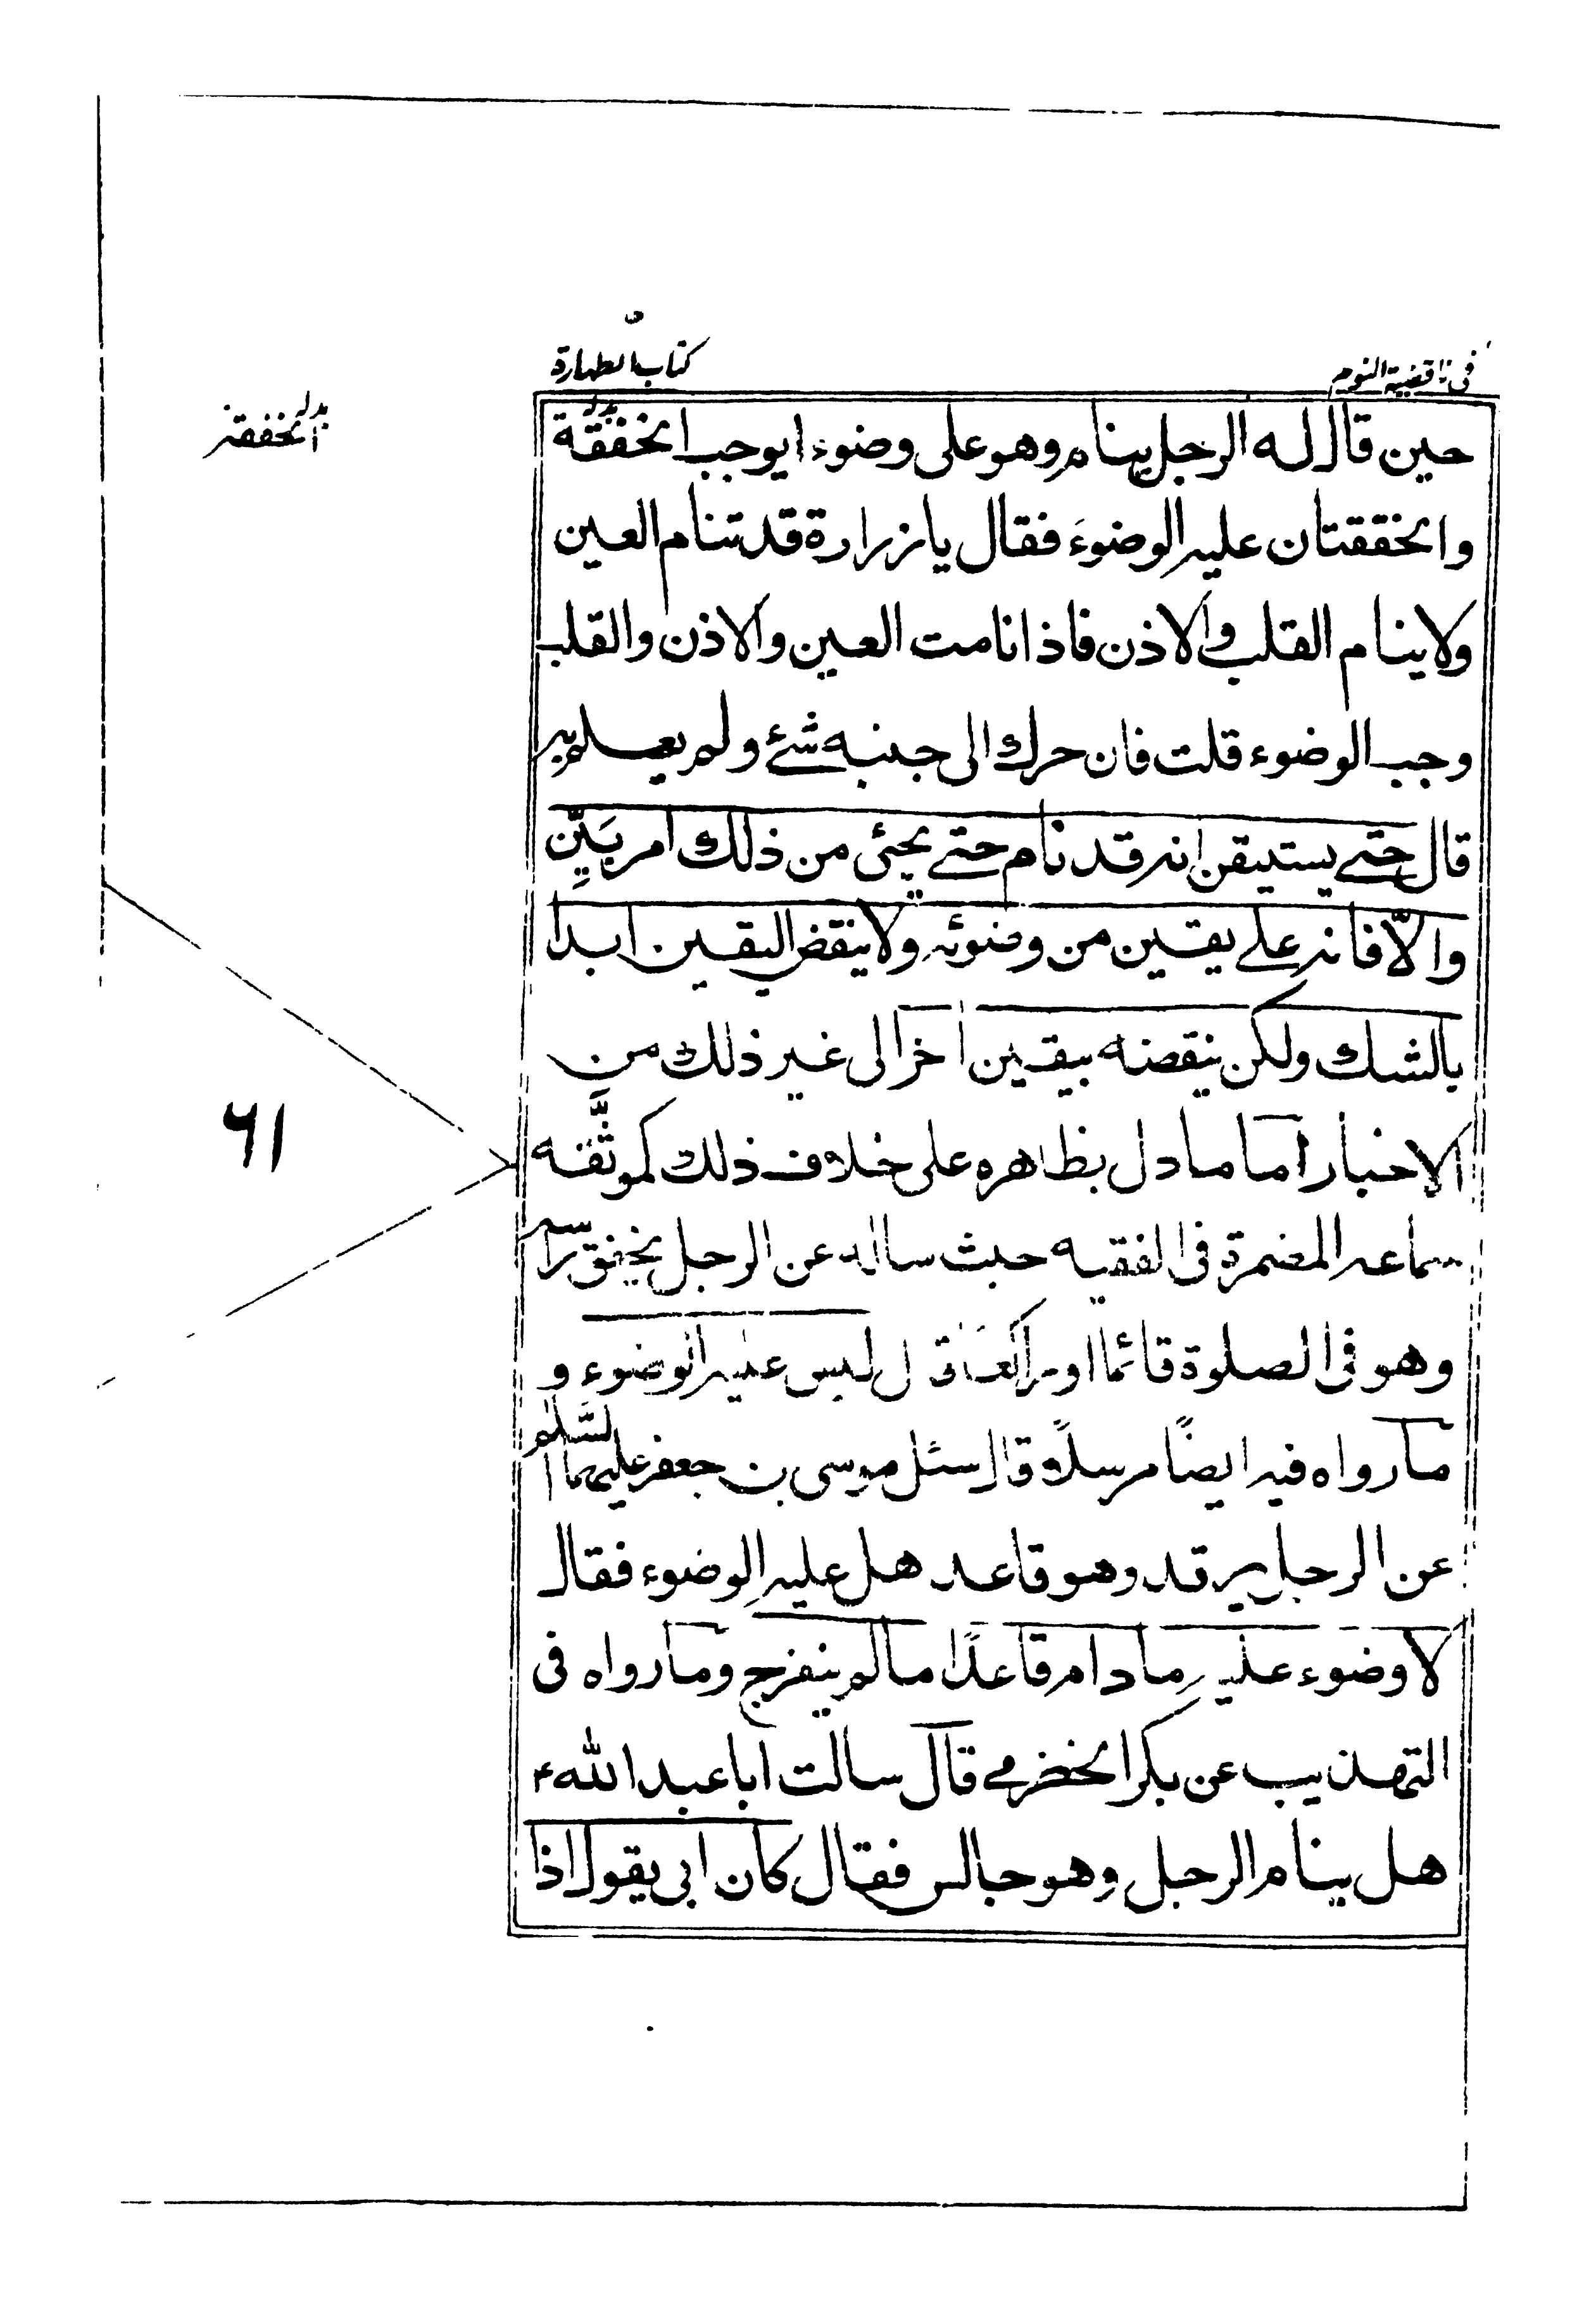 في ناقضية النوم
كتاب الطهارة
حين قال له الرجل ينام وهو على وضوء ايوجب الخفقة
بدله
الخفقة
والخفقتان عليه الوضوءَ فقال يا زرارة قد تنام العين
ولا ينام القلب والاذن فاذا نامت العين والاذن والقلب
وجب الوضوء قلت فان حرك الى جنبه شئ ولم يعلم به
قال حتى يستيقن انه قد نام حتى يجئى من ذلك امر بَيِّن
والّا فانه على يقين من وضوئه ولا ينقض اليقين ابدا
بالشك ولكن ينقضه بيقين اخر الى غير ذلك من
الاخبار اما ما دل بظاهره على خلاف ذلك كموثَّقه
سماعه المضمرة في الفقيه حيث ساله عن الرجل يخفق راسه
وهو في الصلوة قائما او راكعا قال ليس عليه الوضوء و
ما رواه فيه ايضًا مرسلًا قال سئل موسى بن جعفر عليهما السَّلم
عن الرجل يرقد وهو قاعد هل عليه الوضوء فقال
لا وضوء عليه ما دام قاعدًا ما لم ينفرج وما رواه في
التهذيب عن بكر الخضرمي قال سالت ابا عبد الله ع
هل ينام الرجل وهو جالس فقال كان ابي يقول اذا
٦١